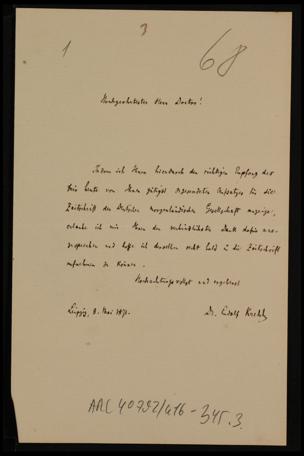 1
3
68
Hochgeehrtester Herr Doctor!
Indem ich Ihnen hierdurch den richtigen Empfang des
bis heute von Ihnen gütigst gesendeten Aufsatzes für die
Zeitschrift der Deutschen morgenländischen Gesellschaft anzeige,
erlaube ich mir Ihnen den verbindlichsten Dank dafür aus-
zusprechen und hoffe ich denselben recht bald in die Zeitschrift
aufnehmen zu können.
Hochachtungsvollst und ergebenst
Leipzig, 8. Mai
Dr. Ludolf Krehl
ARC 4°0792/416-345.3